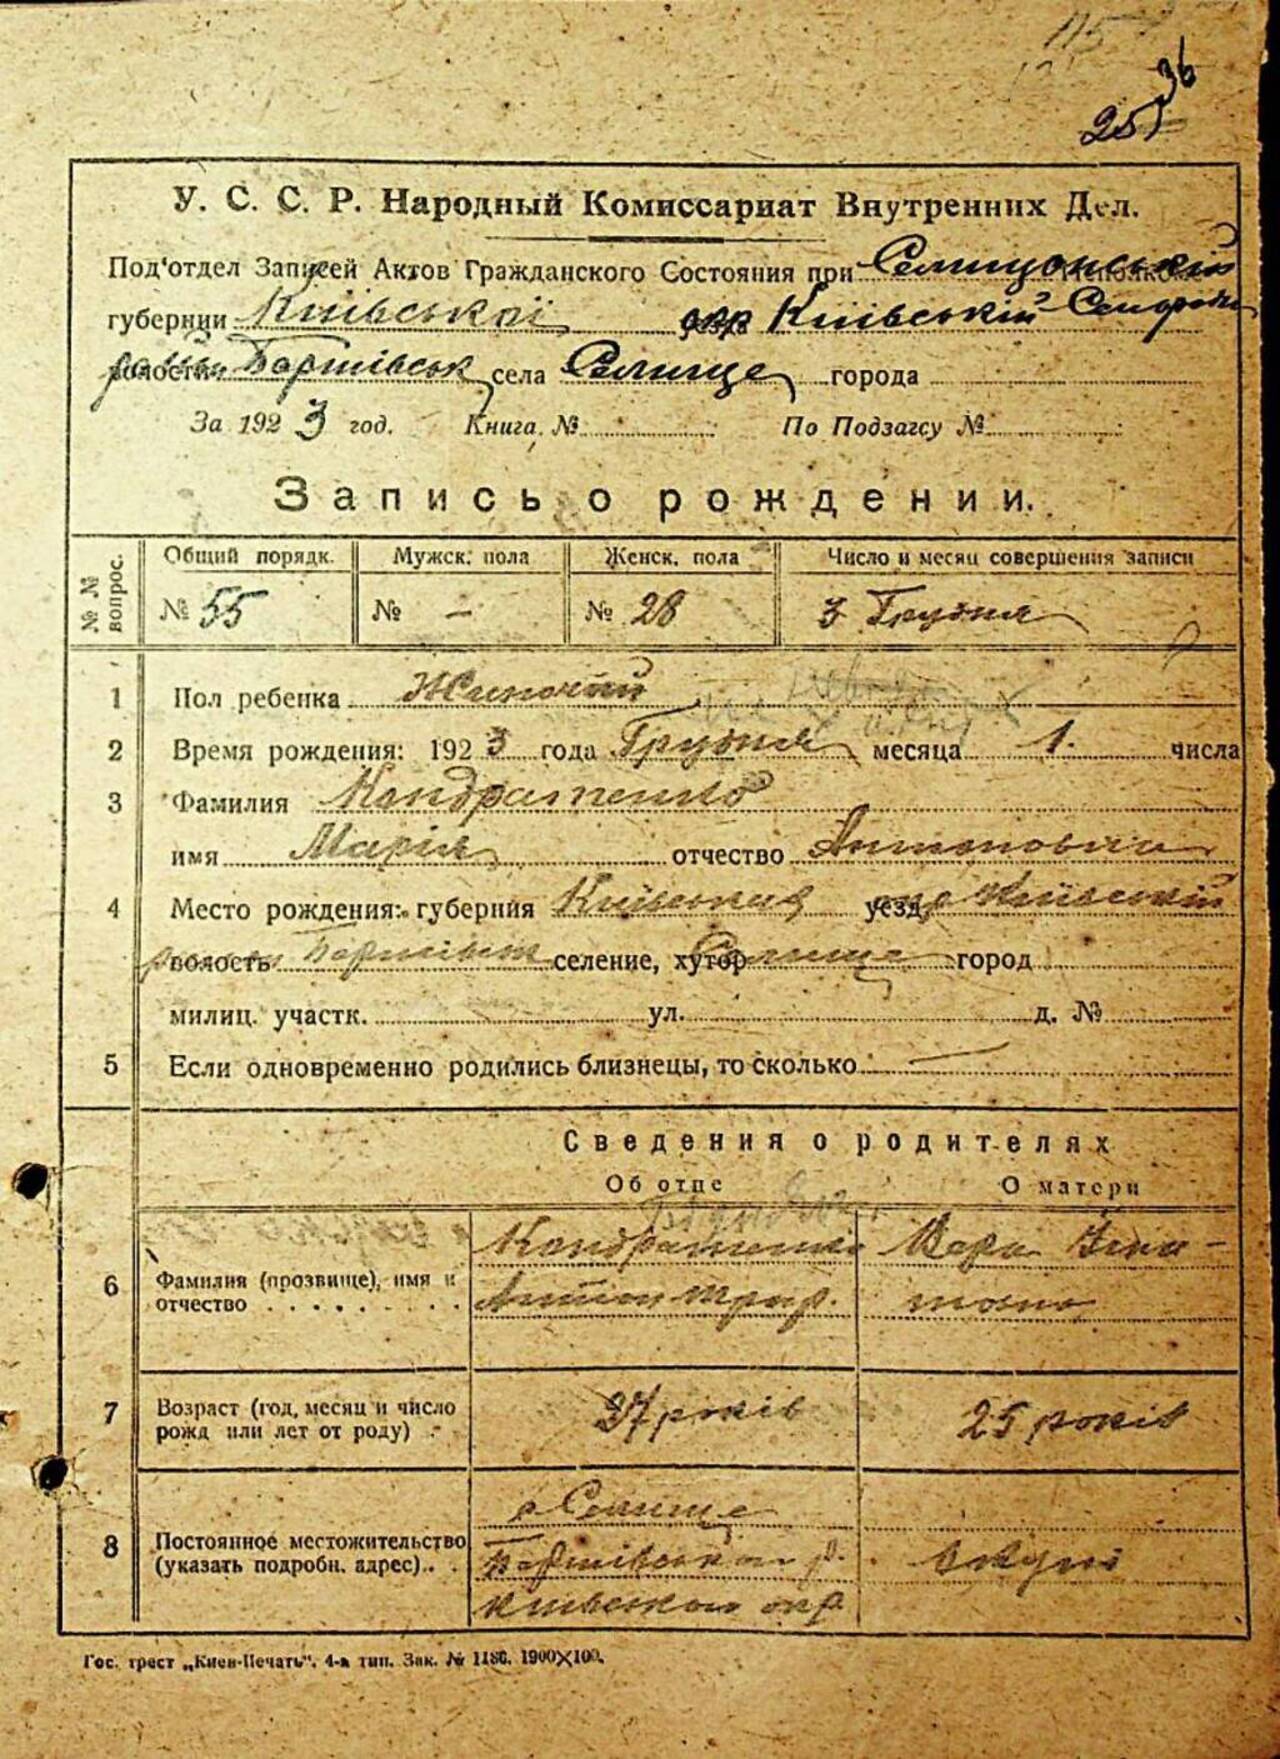 115
36
25
У. С. С. Р. Народный Комиссариат Внутренних Дел.
Под'отдел Записей Актов Гражданского Состояния при Селищанській
губернии Київської окр Київській
волости Баришівськ села Селище города
За 1923 год. Книга. № По Подзагсу №
Запись о рождении.
№ № вопрос. Общий порядк. Мужск. пола Женск. пола Число и месяц совершения записи
№ 55 № - № 28 3 Грудня
1 Пол ребенка Жиночий
2 Время рождения: 1923 года Грудня месяца 1. числа
3 Фамилия Кондратенко
имя Марія отчество Антоновна
4 Место рождения: губерния Київська уезд окр Київській
волость Баришівськ селение, хутор Селище город
милиц. участк. ул. д. №
5 Если одновременно родились близнецы, то сколько —
Сведения о родителях
Об отце О матери
6 Фамилия (прозвище), имя и отчество Кондратенко Антон Вера
7 Возраст (год, месяц и число рожд или лет от роду) 37 років 25 років
8 Постоянное местожительство (указать подробн. адрес) с Селище Баришівського р. Київського окр вкупі
Гос. трест „Киев-Печать“. 4-я тип. Зак. № 1186. 1900×100.